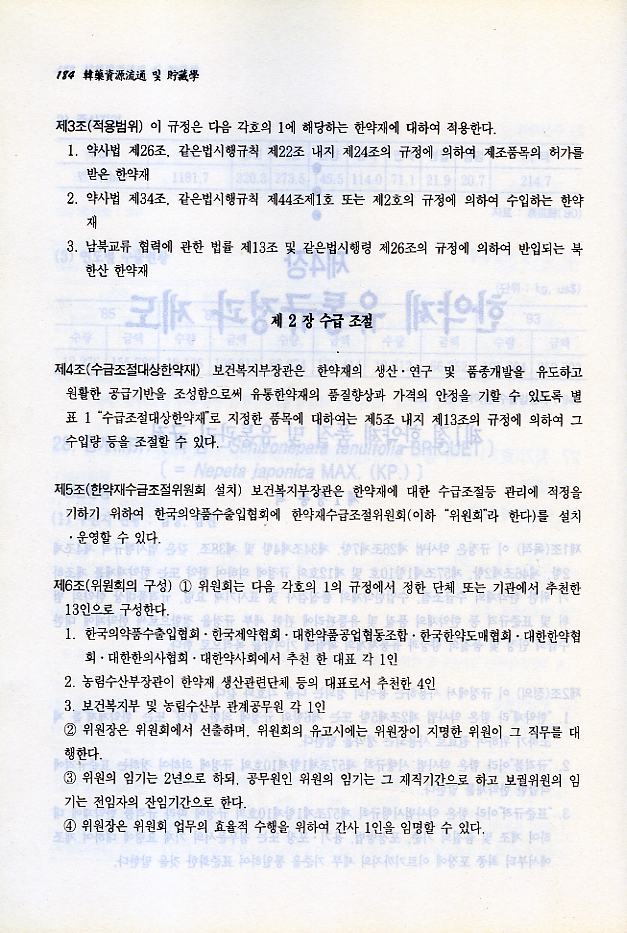 184 韓藥資源流通 및 貯藏學
제3조(적용범위) 이 규정은 다음 각호의 1에 해당하는 한약재에 대하여 적용한다.
1. 약사법 제26조, 같은법시행규칙 제22조 내지 제24조의 규정에 의하여 제조품목의 허가를
받은 한약재
2. 약사법 제34조, 같은법시행규칙 제44조제1호 또는 제2호의 규정에 의하여 수입하는 한약
재
3. 남북교류 협력에 관한 법률 제13조 및 같은법시행령 제26조의 규정에 의하여 반입되는 북
한산 한약재
제 2 장 수급 조절
제4조(수급조절대상한약재) 보건복지부장관은 한약재의 생산·연구 및 품종개발을 유도하고
원활한 공급기반을 조성함으로써 유통한약재의 품질향상과 가격의 안정을 기할 수 있도록 별
표 1 “수급조절대상한약재”로 지정한 품목에 대하여는 제5조 내지 제13조의 규정에 의하여 그
수입량 등을 조절할 수 있다.
제5조(한약재수급조절위원회 설치) 보건복지부장관은 한약재에 대한 수급조절등 관리에 적정을
기하기 위하여 한국의약품수출입협회에 한약재수급조절위원회(이하 “위원회”라 한다)를 설치
·운영할 수 있다.
제6조(위원회의 구성) ① 위원회는 다음 각호의 1의 규정에서 정한 단체 또는 기관에서 추천한
13인으로 구성한다.
1. 한국의약품수출입협회·한국제약협회·대한약품공업협동조합·한국한약도매협회·대한한약협
회·대한한의사협회·대한약사회에서 추천 한 대표 각 1인
2. 농림수산부장관이 한약재 생산관련단체 등의 대표로서 추천한 4인
3. 보건복지부 및 농림수산부 관계공무원 각 1인
② 위원장은 위원회에서 선출하며, 위원회의 유고시에는 위원장이 지명한 위원이 그 직무를 대
행한다.
③ 위원의 임기는 2년으로 하되, 공무원인 위원의 임기는 그 재직기간으로 하고 보궐위원의 임
기는 전임자의 잔임기간으로 한다.
④ 위원장은 위원회 업무의 효율적 수행을 위하여 간사 1인을 임명할 수 있다.